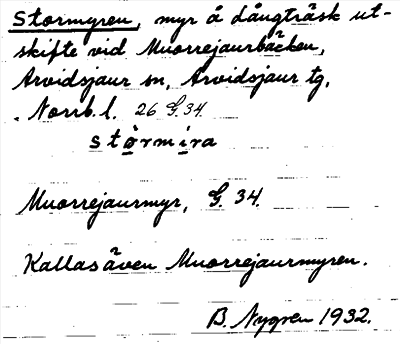 Stormyren, myr å Långträsk ut-
skifte vid Muorrejaurbäcken,
Arvidsjaur sn, Arvidsjaur tg,
Norrb. l. 26 G. 34.
stòrmira
Muorrejaurmyr, G. 34.
Kallas även Muorrejaurmyren.
B. Nygren 1932.